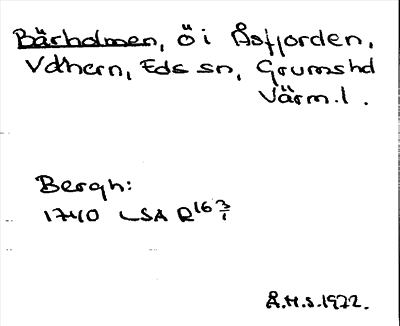 Bärholmen, ö i Åsfjorden,
Vänern, Eds sn, Grums hd
Värml.
Bergh:
1740 LSA R16 3/1
Å.H.S. 1922.